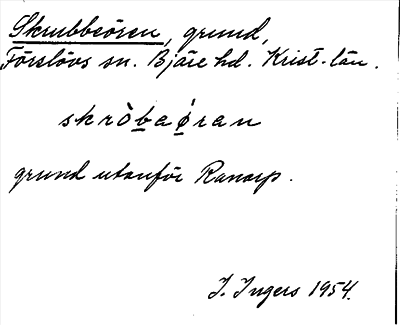 Skrubbeören, grund,
Förslövs sn. Bjäre hd. Krist. län.
skròbaø̀ran
grund utanför Ranarp.
I. Ingers 1954.